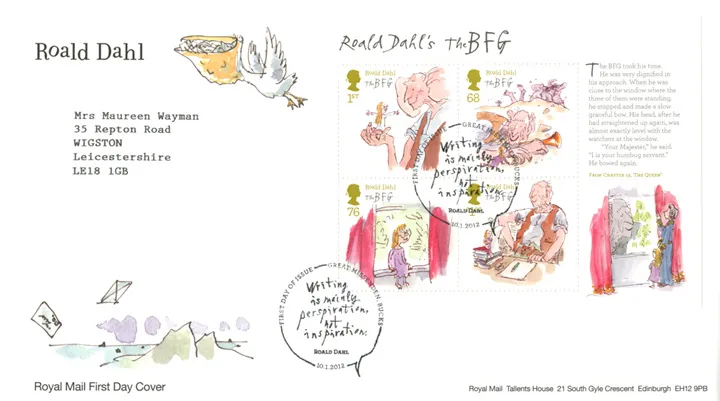 Roald Dahl
Mrs Maureen Wayman
35 Repton Road
WIGSTON
Leicestershire
LE18 1GB
Roald Dahl's The BFG
Roald Dahl
The BFG
1ST
Roald Dahl
The BFG
68
Roald Dahl
The BFG
76
Roald Dahl
The BFG
The BFG took his time.
He was very dignified in
his approach. When he was
close to the window where the
three of them were standing,
he stopped and made a slow
graceful bow. His head, after he
had straightened up again, was
almost exactly level with the
watchers at the window.
"Your Majester," he said.
"I is your humbug servant."
He bowed again.
From Chapter 19, 'The Queen'
FIRST DAY OF ISSUE GREAT MISSENDEN, BUCKS
Writing
is mainly
perspiration,
not
inspiration.
ROALD DAHL
10.1.2012
FIRST DAY OF ISSUE — GREAT MISSENDEN, BUCKS
Writing
is mainly
perspiration,
not
inspiration.
ROALD DAHL
10.1.2012
Royal Mail First Day Cover
Royal Mail Tallents House 21 South Gyle Crescent Edinburgh EH12 9PB